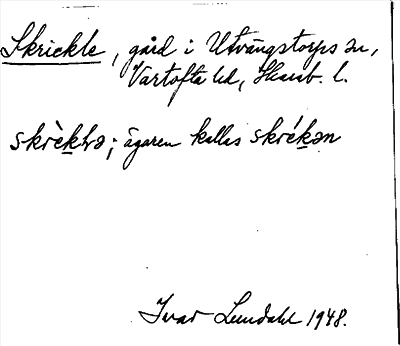 Skrickle, gård i Utvängstorps sn,
Vartofta hd, Skarab. l.
skrèkɫə; ägaren kallas skrékən
Ivar Lundahl 1948.